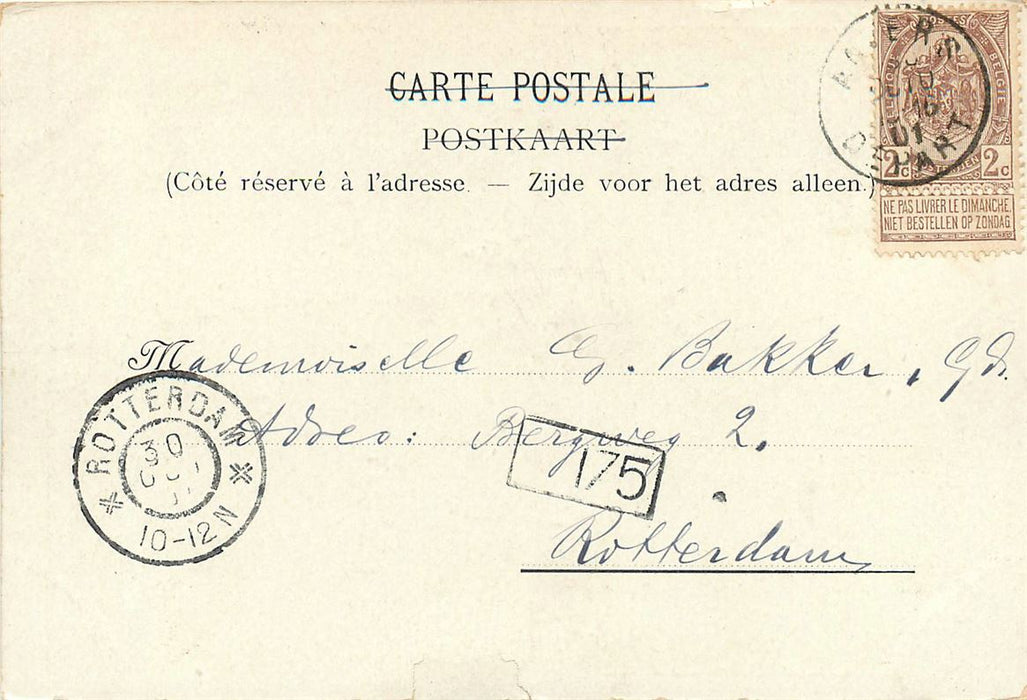 CARTE POSTALE
POSTKAART
(Côté réservé à l'adresse. — Zijde voor het adres alleen.)
DEPART
01
2c 2c
NE PAS LIVRER LE DIMANCHE
NIET BESTELLEN OP ZONDAG
Mademoiselle G. Bakker, Gd.
Adres: Bergweg 2.
175
Rotterdam
ROTTERDAM
30
10-12N